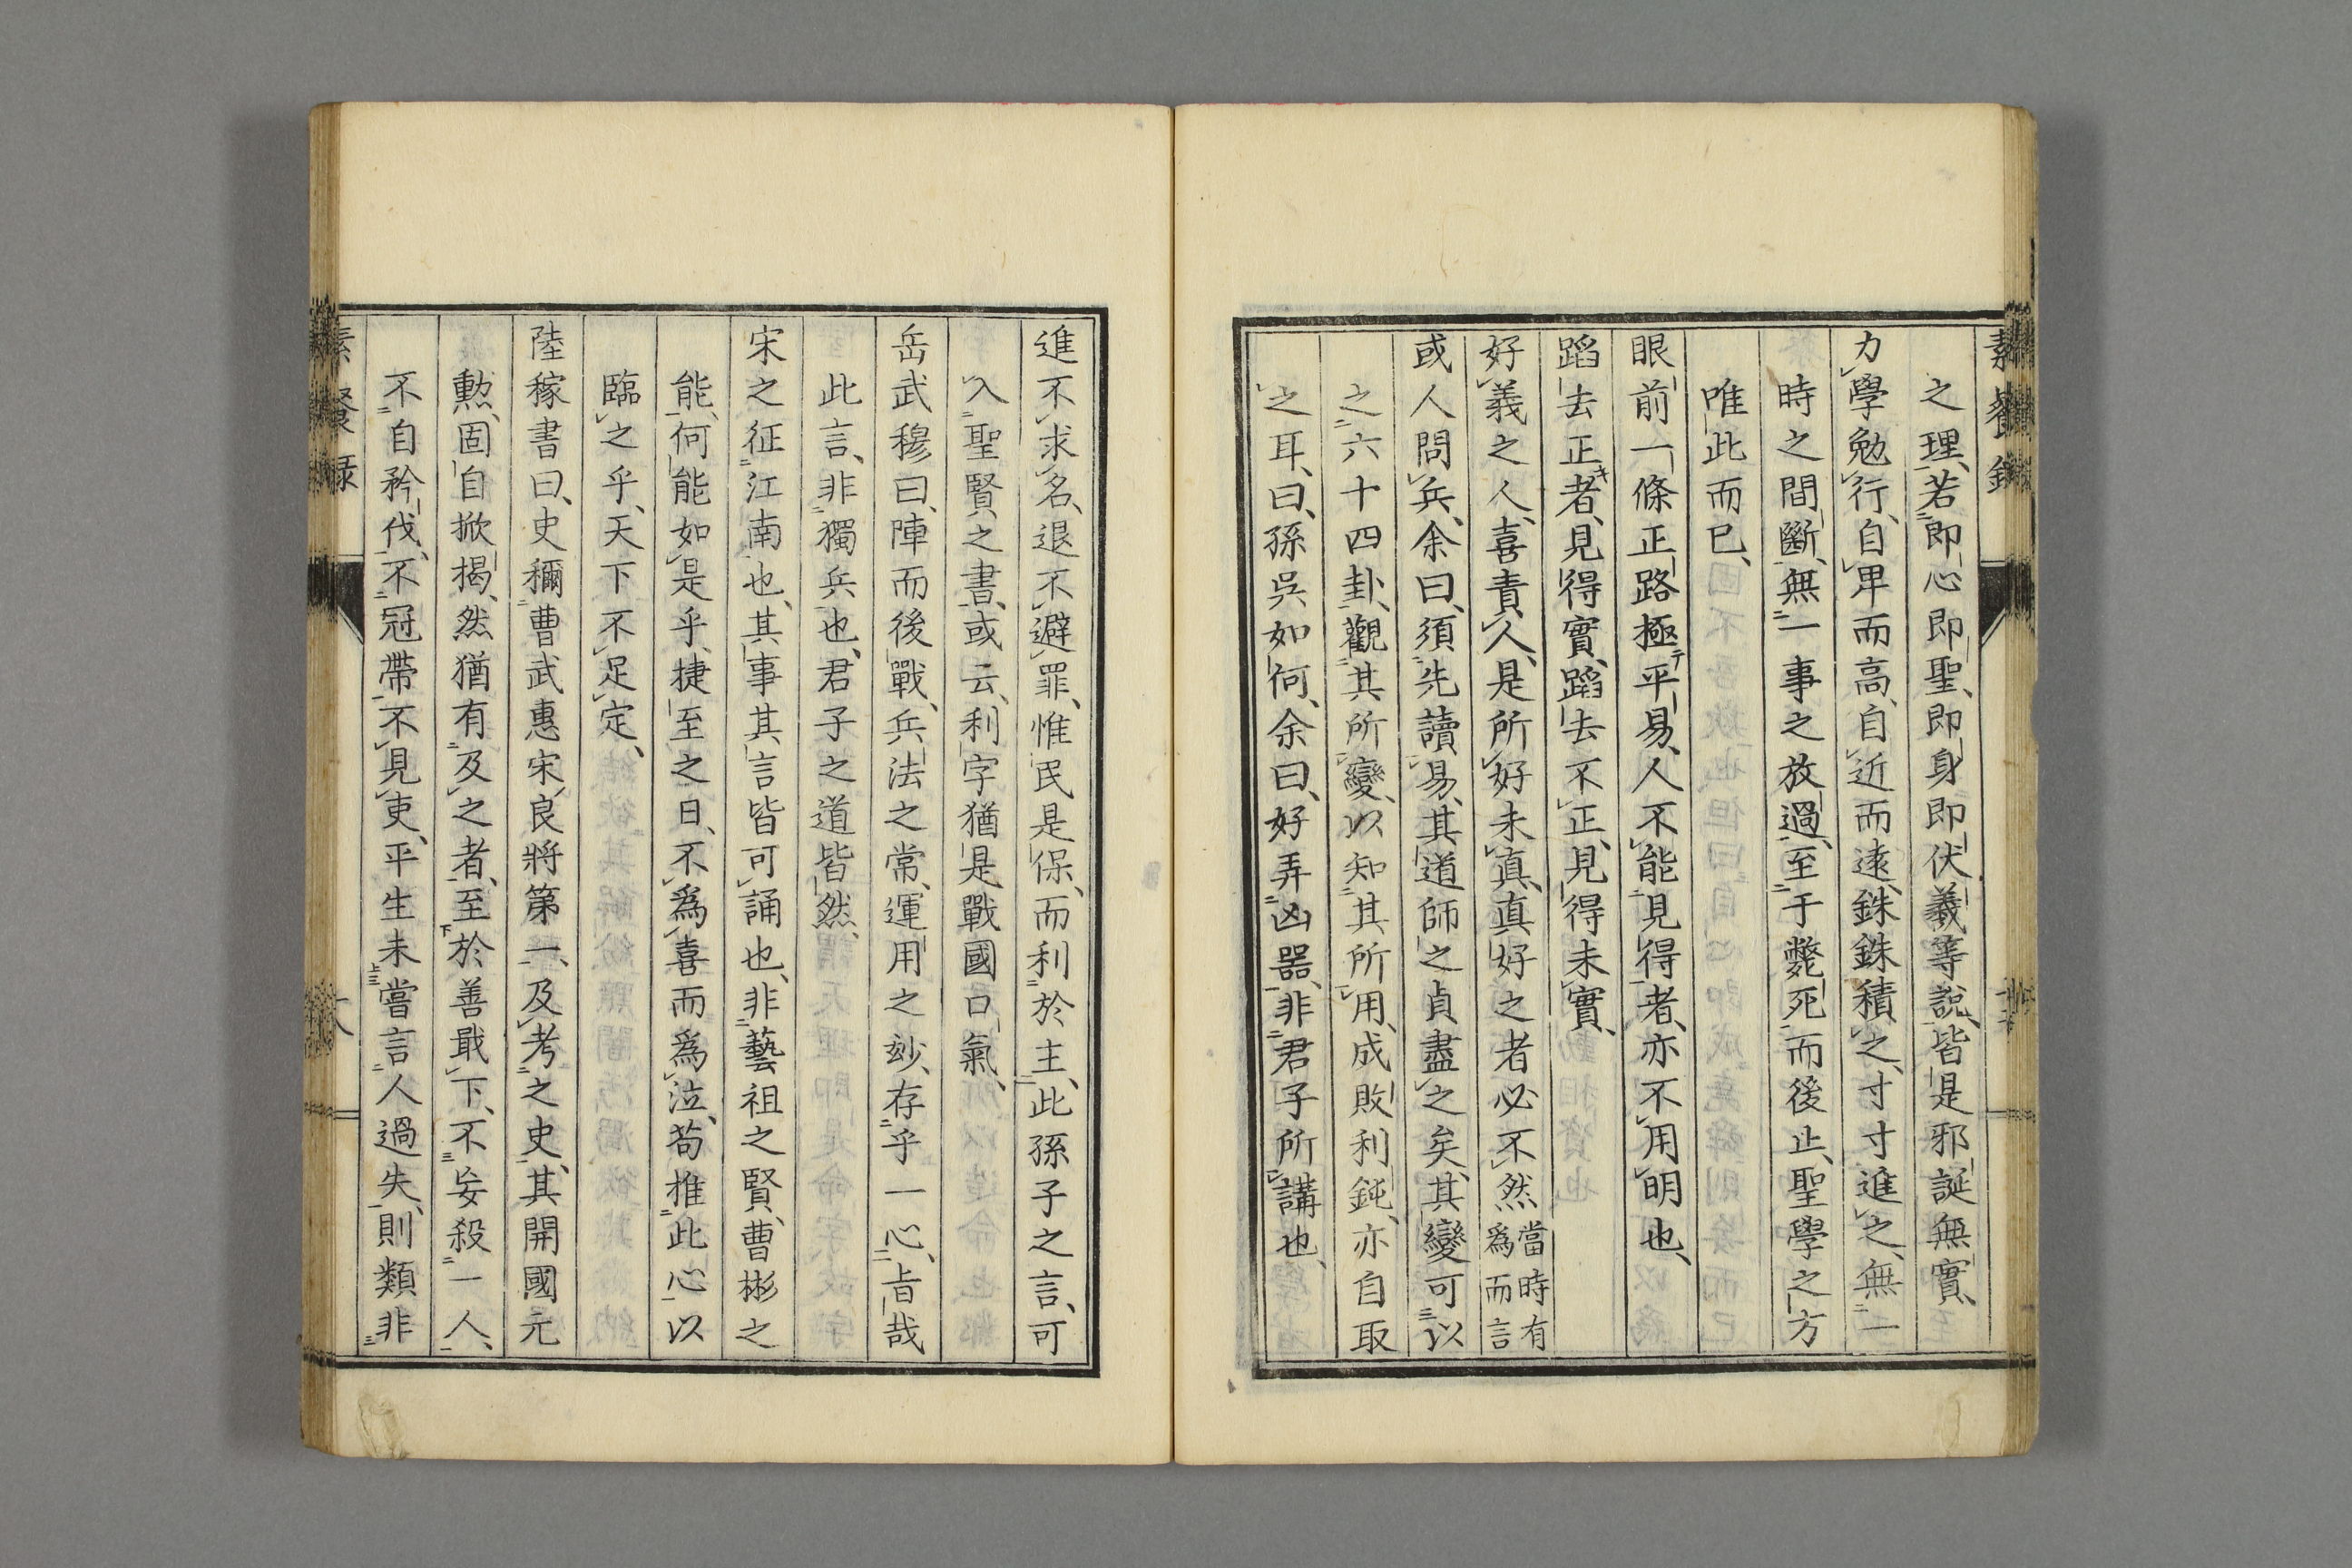 素餐錄
之理、若即心即聖、即身即伏羲等說、皆是邪誕無實、
力學勉行、自卑而高、自近而遠、銖銖積之、寸寸進之、無一
時之間斷、無一事之放過、至于斃死而後止、聖學之方
唯此而已、
眼前一條正路極平易、人不能見得者、亦不用明也、
蹈去正者、見得實、蹈去不正、見得未實、
好義之人、喜責人、是所好未真、真好之者必不然當時有爲而言
或人問兵、余曰、須先讀易、其道師之貞盡之矣、其變可以
之六十四卦、觀其所變、以知其所用、成敗利鈍、亦自取
之耳、曰、孫吳如何、余曰、好弄凶器、非君子所講也、
進不求名、退不避罪、惟民是保、而利於主、此孫子之言、可
入聖賢之書、或云、利字猶是戰國口氣、
岳武穆曰、陣而後戰、兵法之常、運用之玅、存乎一心、旨哉
此言、非獨兵也、君子之道皆然、
宋之征江南也、其事其言皆可誦也、非藝祖之賢、曹彬之
能、何能如是乎、捷至之日、不爲喜而爲泣、苟推此心以
臨之乎、天下不足定、
陸稼書曰、史稱曹武惠宋良將第一、及考之史、其開國元
勲、固自掀揭、然猶有及之者、至於善戢下、不妄殺一人、
不自矜伐、不冠帶不見吏、平生未嘗言人過失、則類非
素餐録